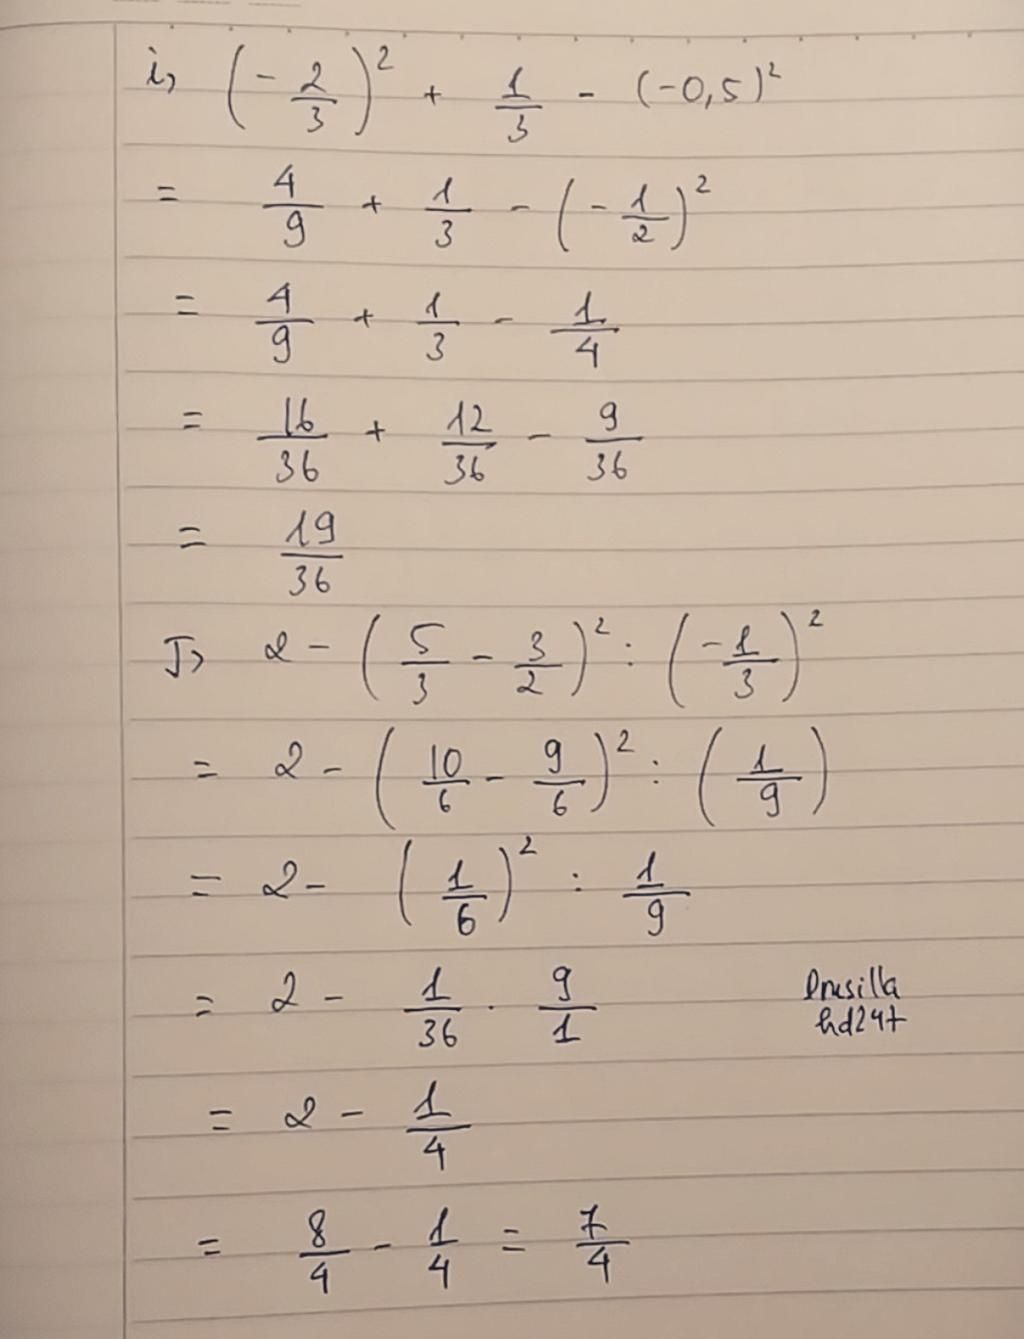 i, (-2/3)² + 1/3 - (-0,5)²
= 4/9 + 1/3 - (-1/2)²
= 4/9 + 1/3 - 1/4
= 16/36 + 12/36 - 9/36
= 19/36
J, 2 - (5/3 - 3/2)² : (-1/3)²
= 2 - (10/6 - 9/6)² : (1/9)
= 2 - (1/6)² : 1/9
= 2 - 1/36 . 9/1
= 2 - 1/4
= 8/4 - 1/4 = 7/4